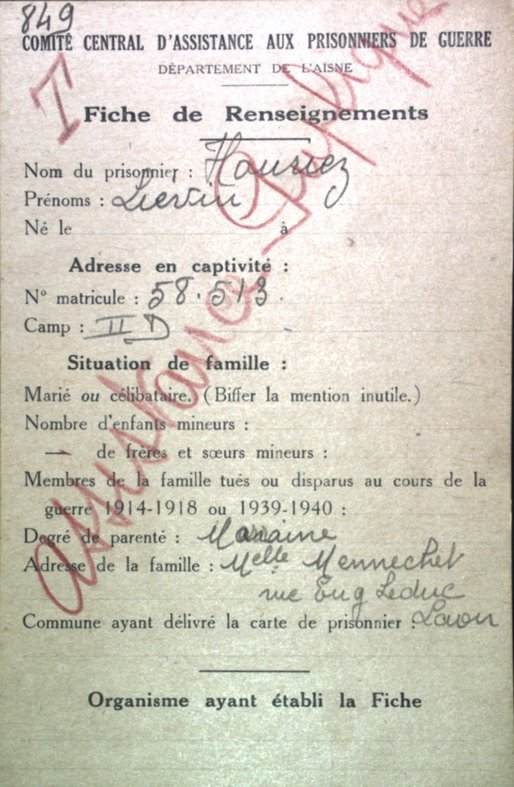 849
COMITÉ CENTRAL D'ASSISTANCE AUX PRISONNIERS DE GUERRE
DÉPARTEMENT DE L'AISNE
T
Fiche de Renseignements
Nom du prisonnier :
Prénoms :
Né le à
Adresse en captivité :
N° matricule : 58.513.
Camp : II D
Situation de famille :
Marié ou célibataire. (Biffer la mention inutile.)
Nombre d'enfants mineurs :
— de frères et sœurs mineurs :
Membres de la famille tués ou disparus au cours de la
guerre 1914-1918 ou 1939-1940 :
Degré de parenté : Marraine
Adresse de la famille : Melle Mennechet
rue Eug Leduc
Commune ayant délivré la carte de prisonnier : Laon
Organisme ayant établi la Fiche
assistance